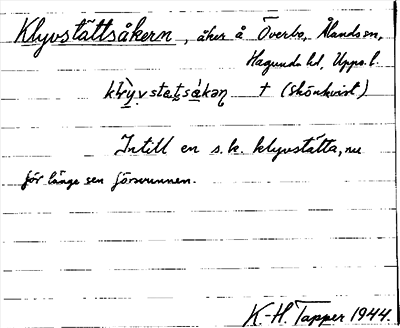 Klyvstättsåkern, åker å Överbo, Ålands sn,
Hagunda hd, Upps. l.
klỳvstatsåkəɳ † (Skönkvist)
Intill en s. k. klyvstätta, nu
för länge sen försvunnen.
K.-H. Tapper 1944.